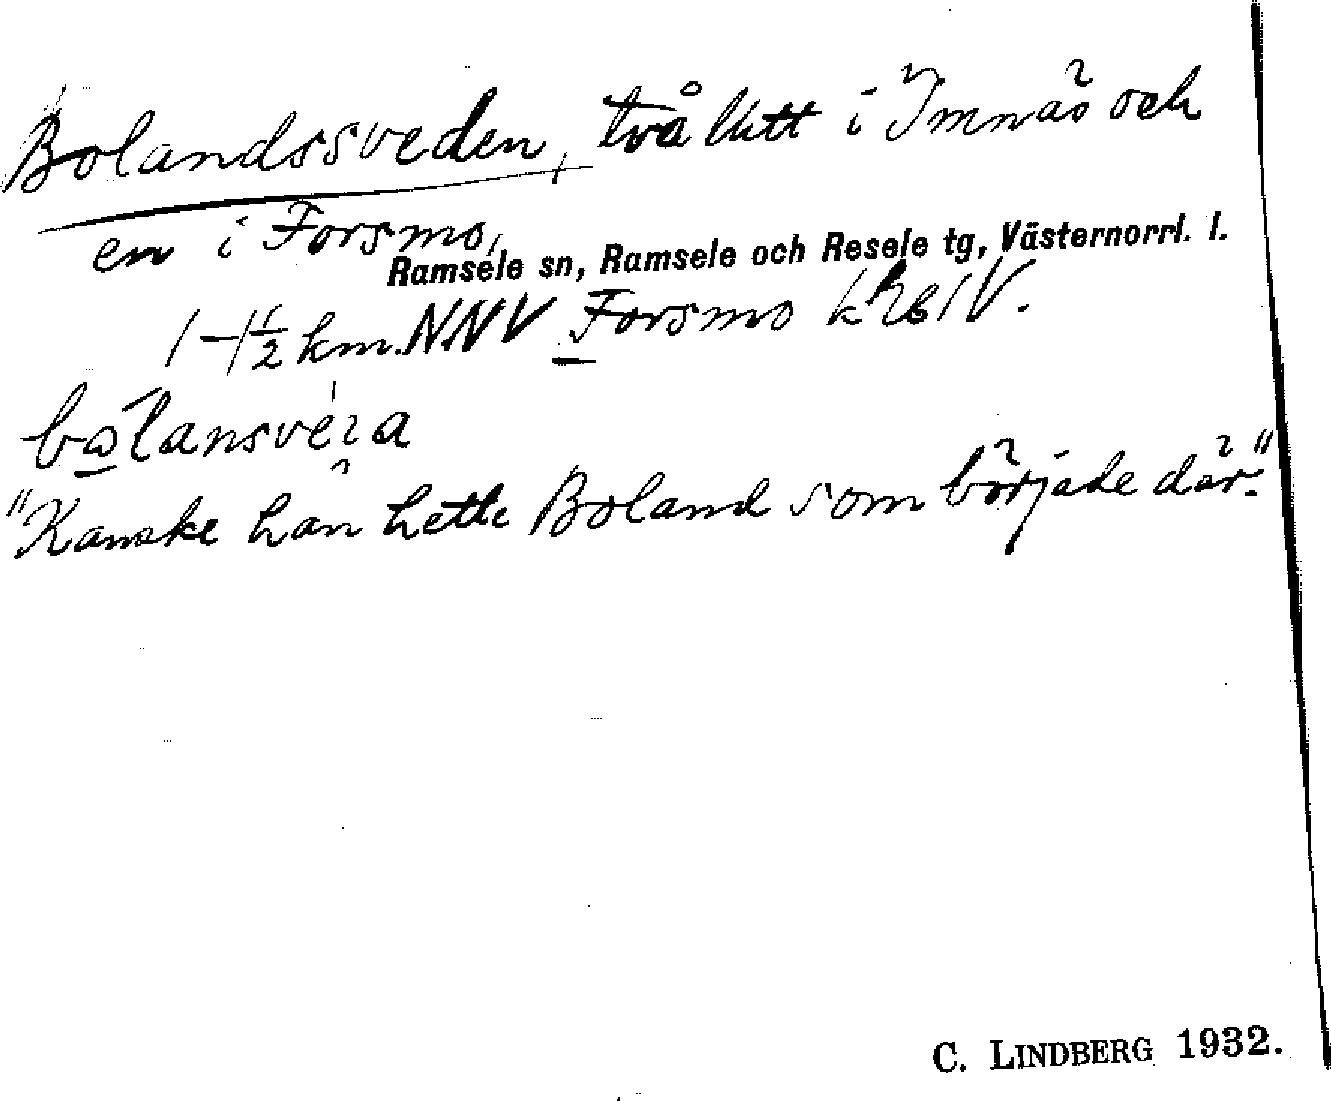 Bolandssveden, två lutt i Imnäs och
en i Forsmo,
Ramsele sn, Ramsele och Resele tg, Västernorrl. l.
1-1½ km. NNV Forsmo
Kanske han hette Boland som började där."
C. LINDBERG 1932.